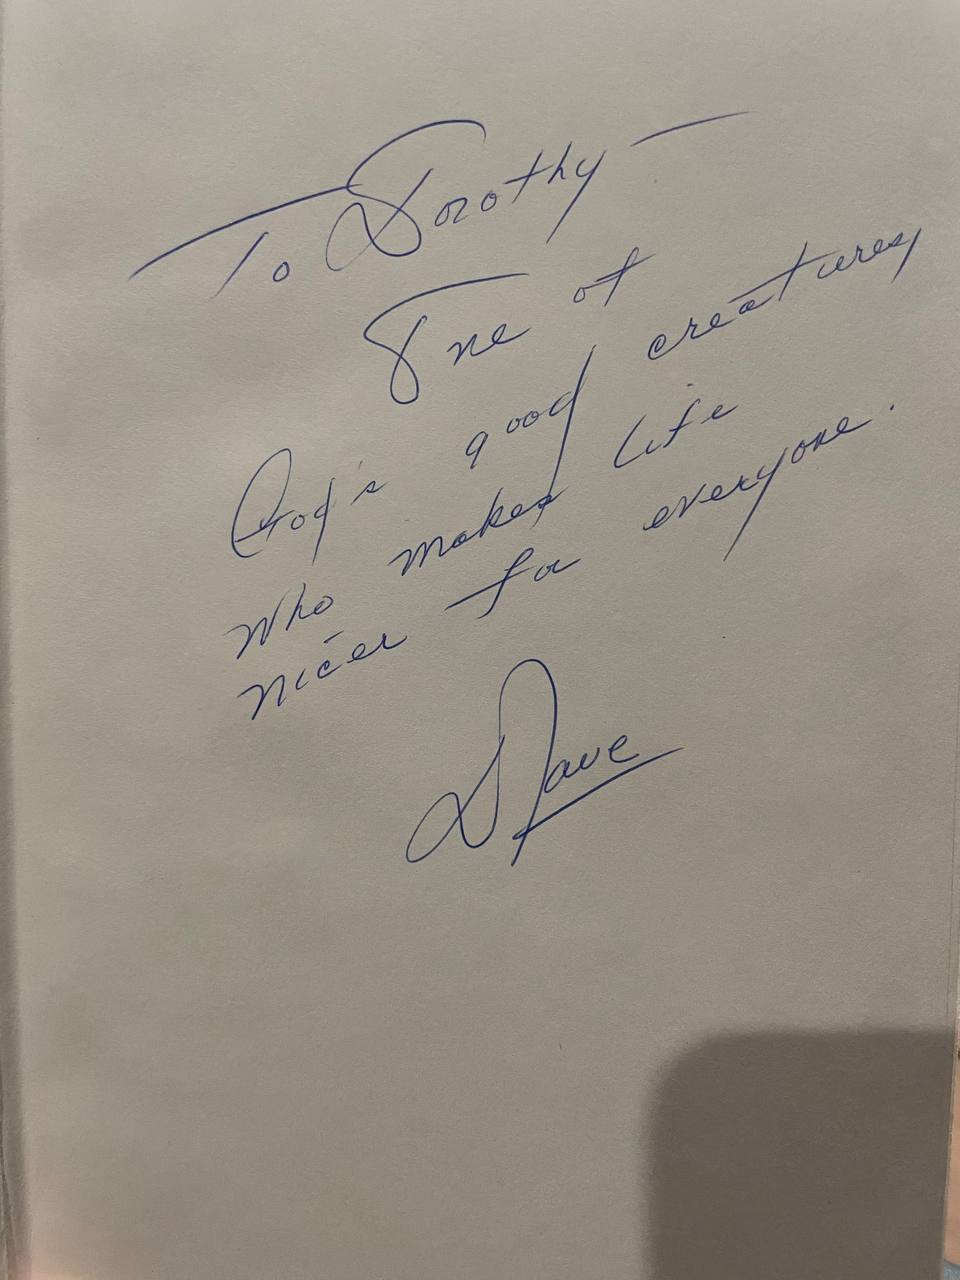 To Dorothy —
One of
God's good creatures
who makes life
nicer for everyone.
Dave